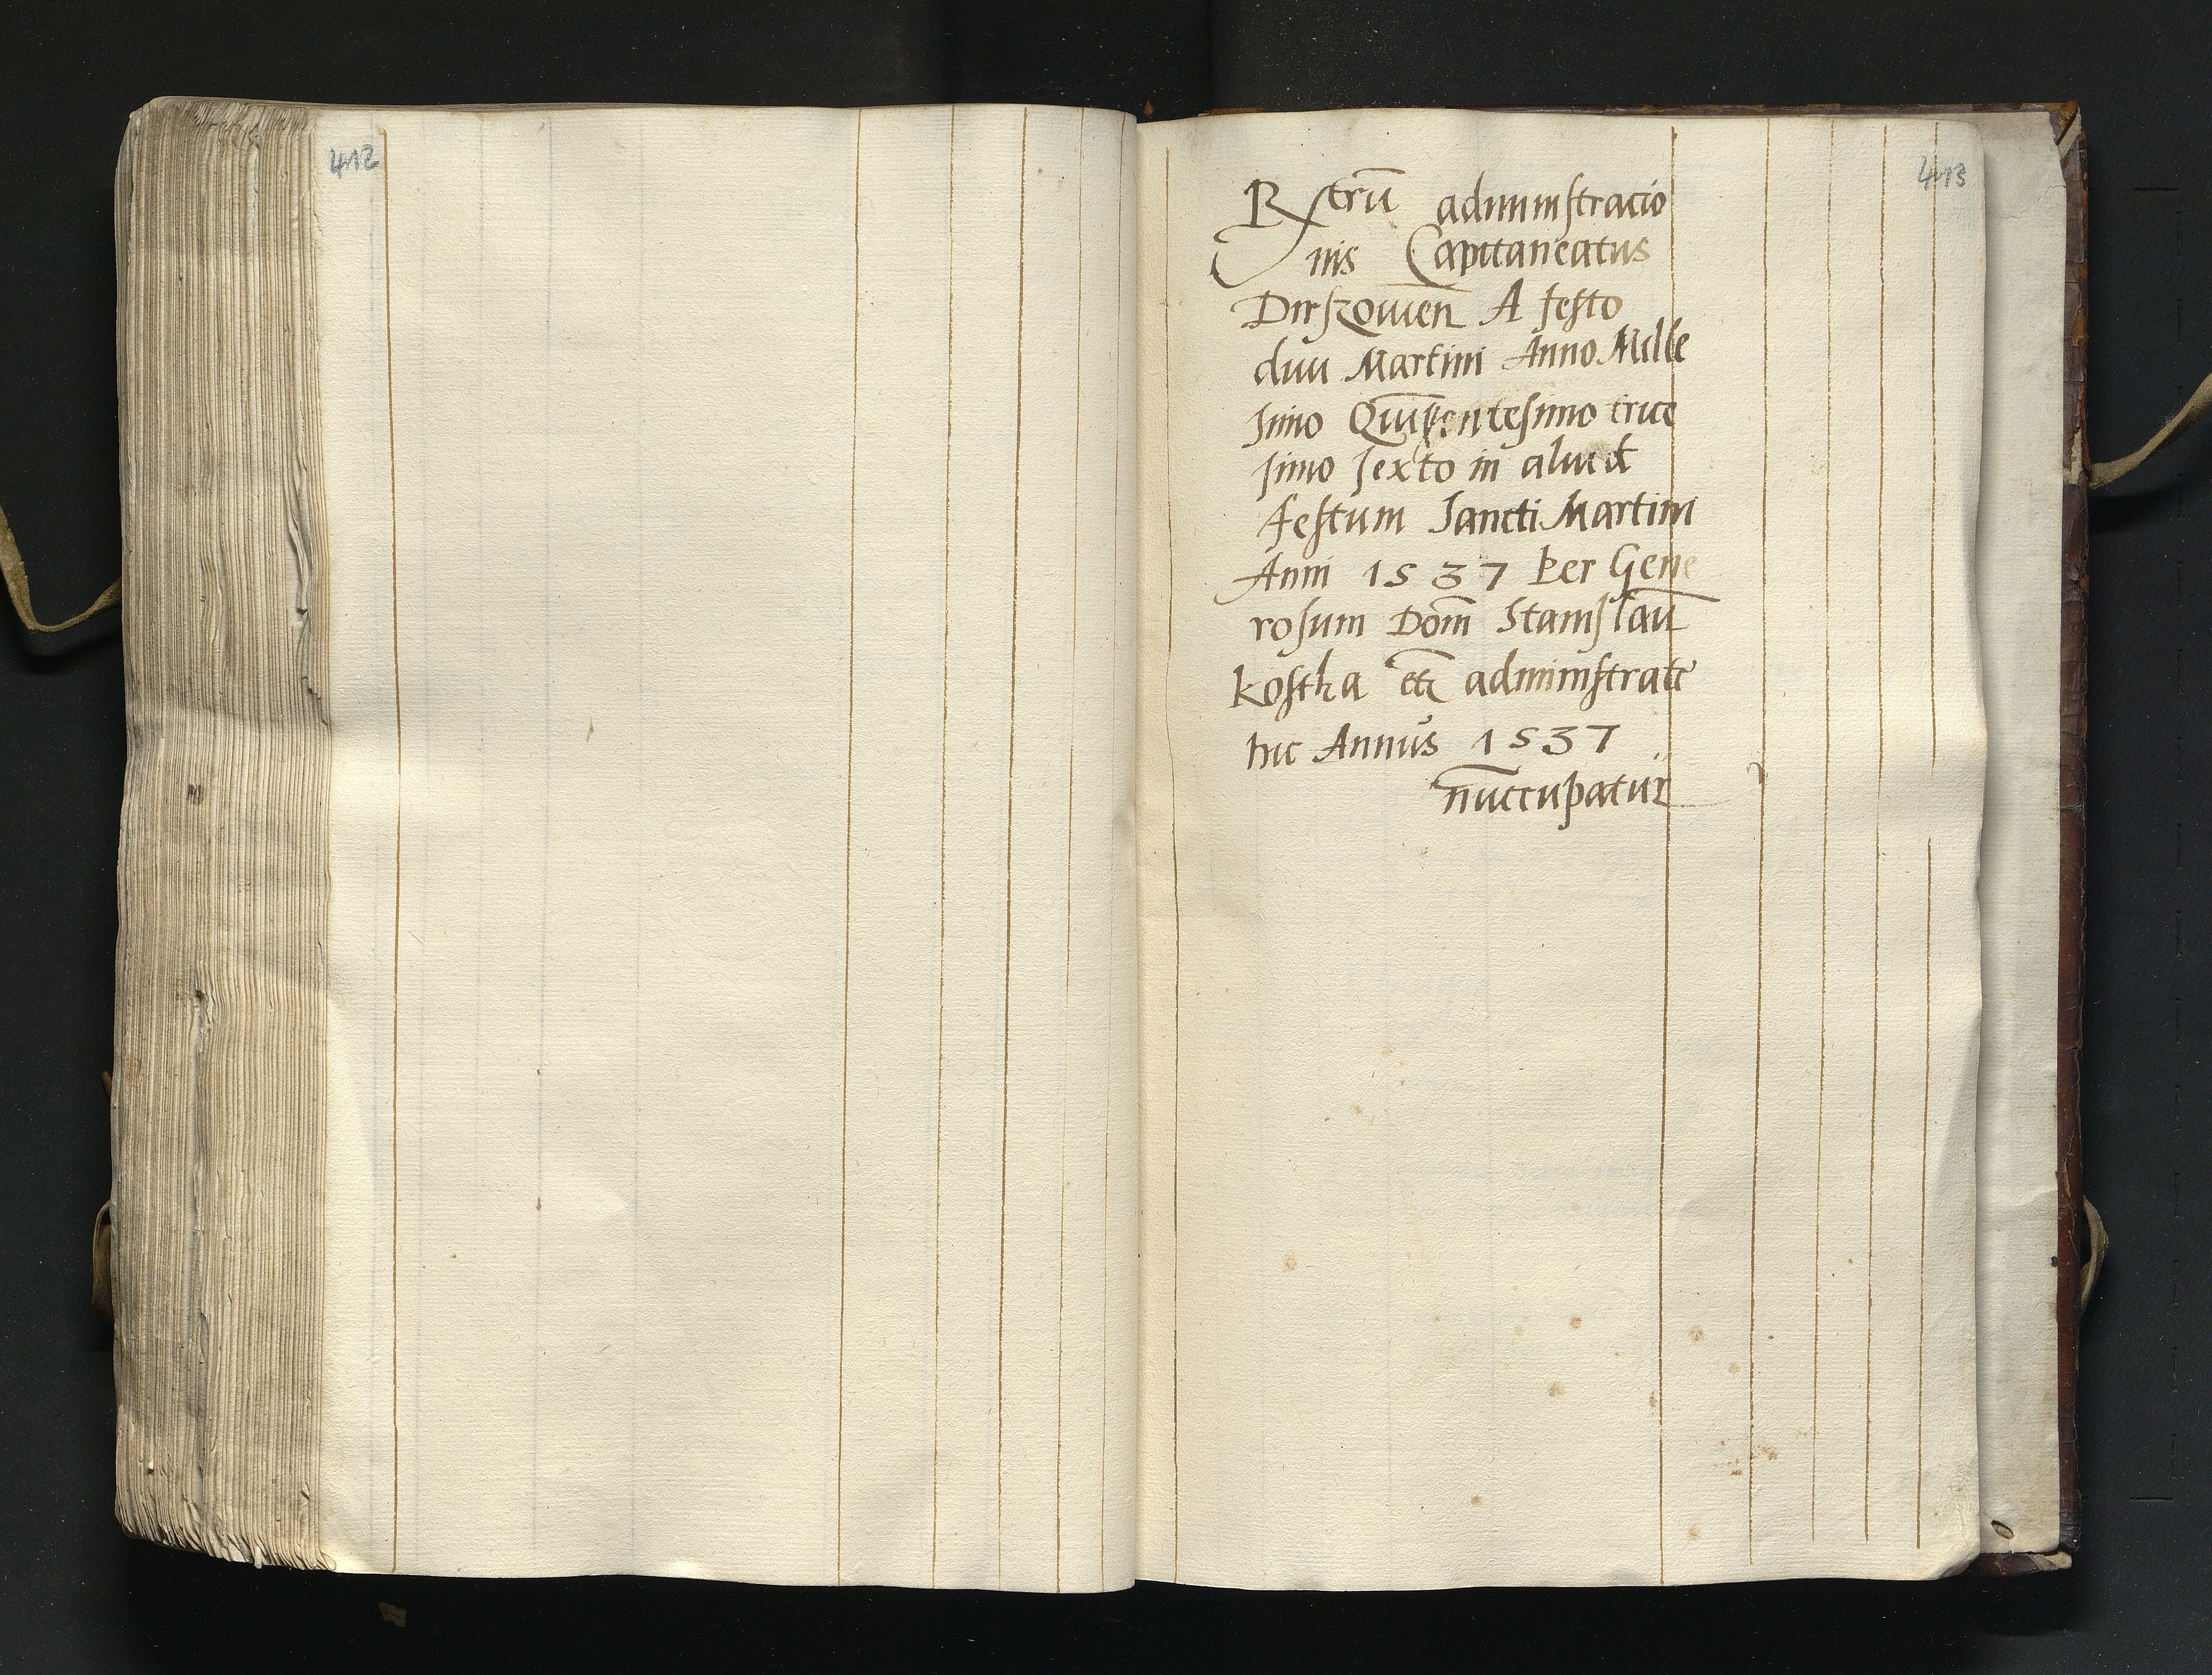 412
413
Rstrū administracio
nis Capitaneatus
Dirszouien̄ A festo
diui Martini Anno Mille
simo Quīgentesimo trice
simo sexto in aliud
festum Sancti Martini
Anni 1537 per Gene
rosum Dom̄ Stanislaū
Kostka etc̄ administrate
hic Annus 1537
nūccupatur